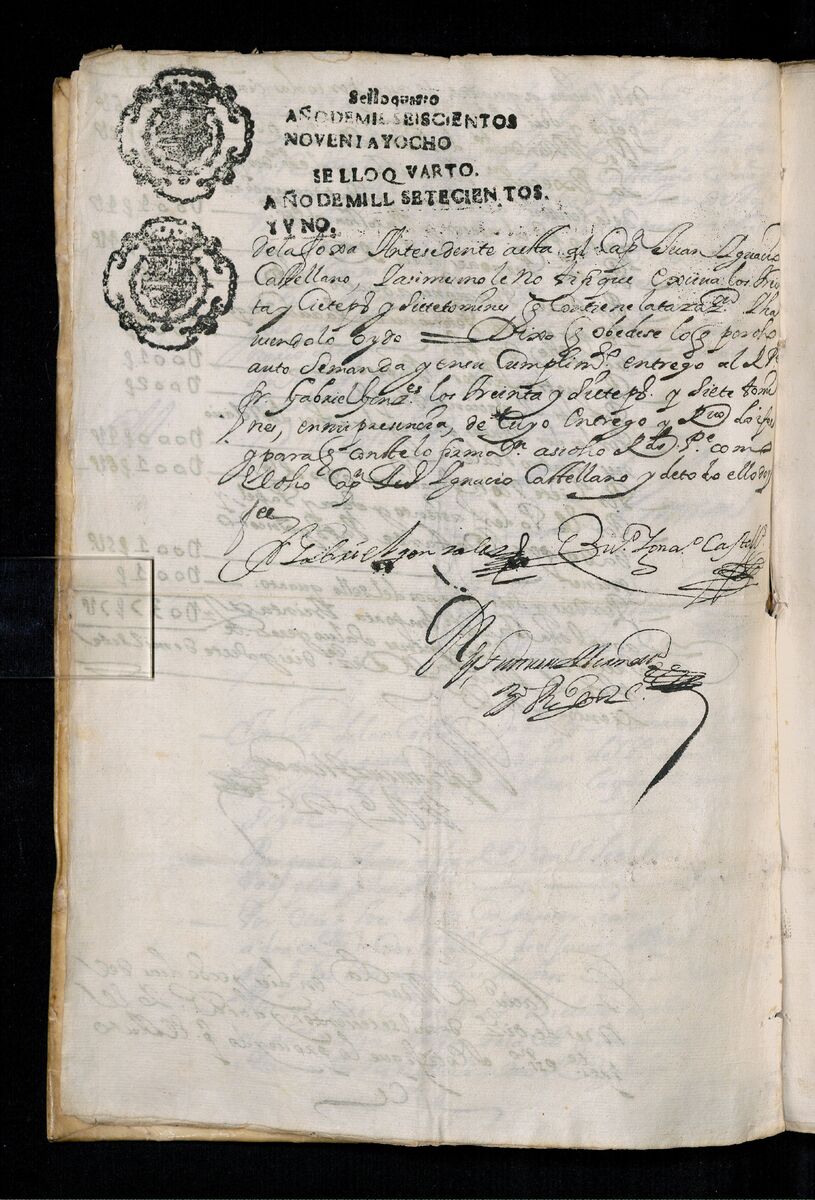 Sello quarto
AÑO DE MIL SEISCIENTOS
NOVENTA Y OCHO
SELLO QVARTO.
AÑO DE MILL SETECIENTOS.
Y VNO.
de la foxa Antesedente a esta al Capn Juan Ygnacio
Castellano, y asimesmo le no tifique exsiua los trein
ta y siete ps y siete tomines q contiene la tazazon Y ha
uiendolo oydo = Dixo q obedese lo q por dho
auto se manda y en su Cumplimto entrego al R P
fr. Gabriel gonzes los treinta y siete ps. y siete tomi
nes, en mi presencia, de Cuyo entrego y Rno doi fee
y para q conste lo firmaon asi dho Rdo Pe como
el dho Capn Ju Ygnacio Castellano y de to do ello doy
fee
Fr Gabriel gonzales Juo Ygnaco Castello